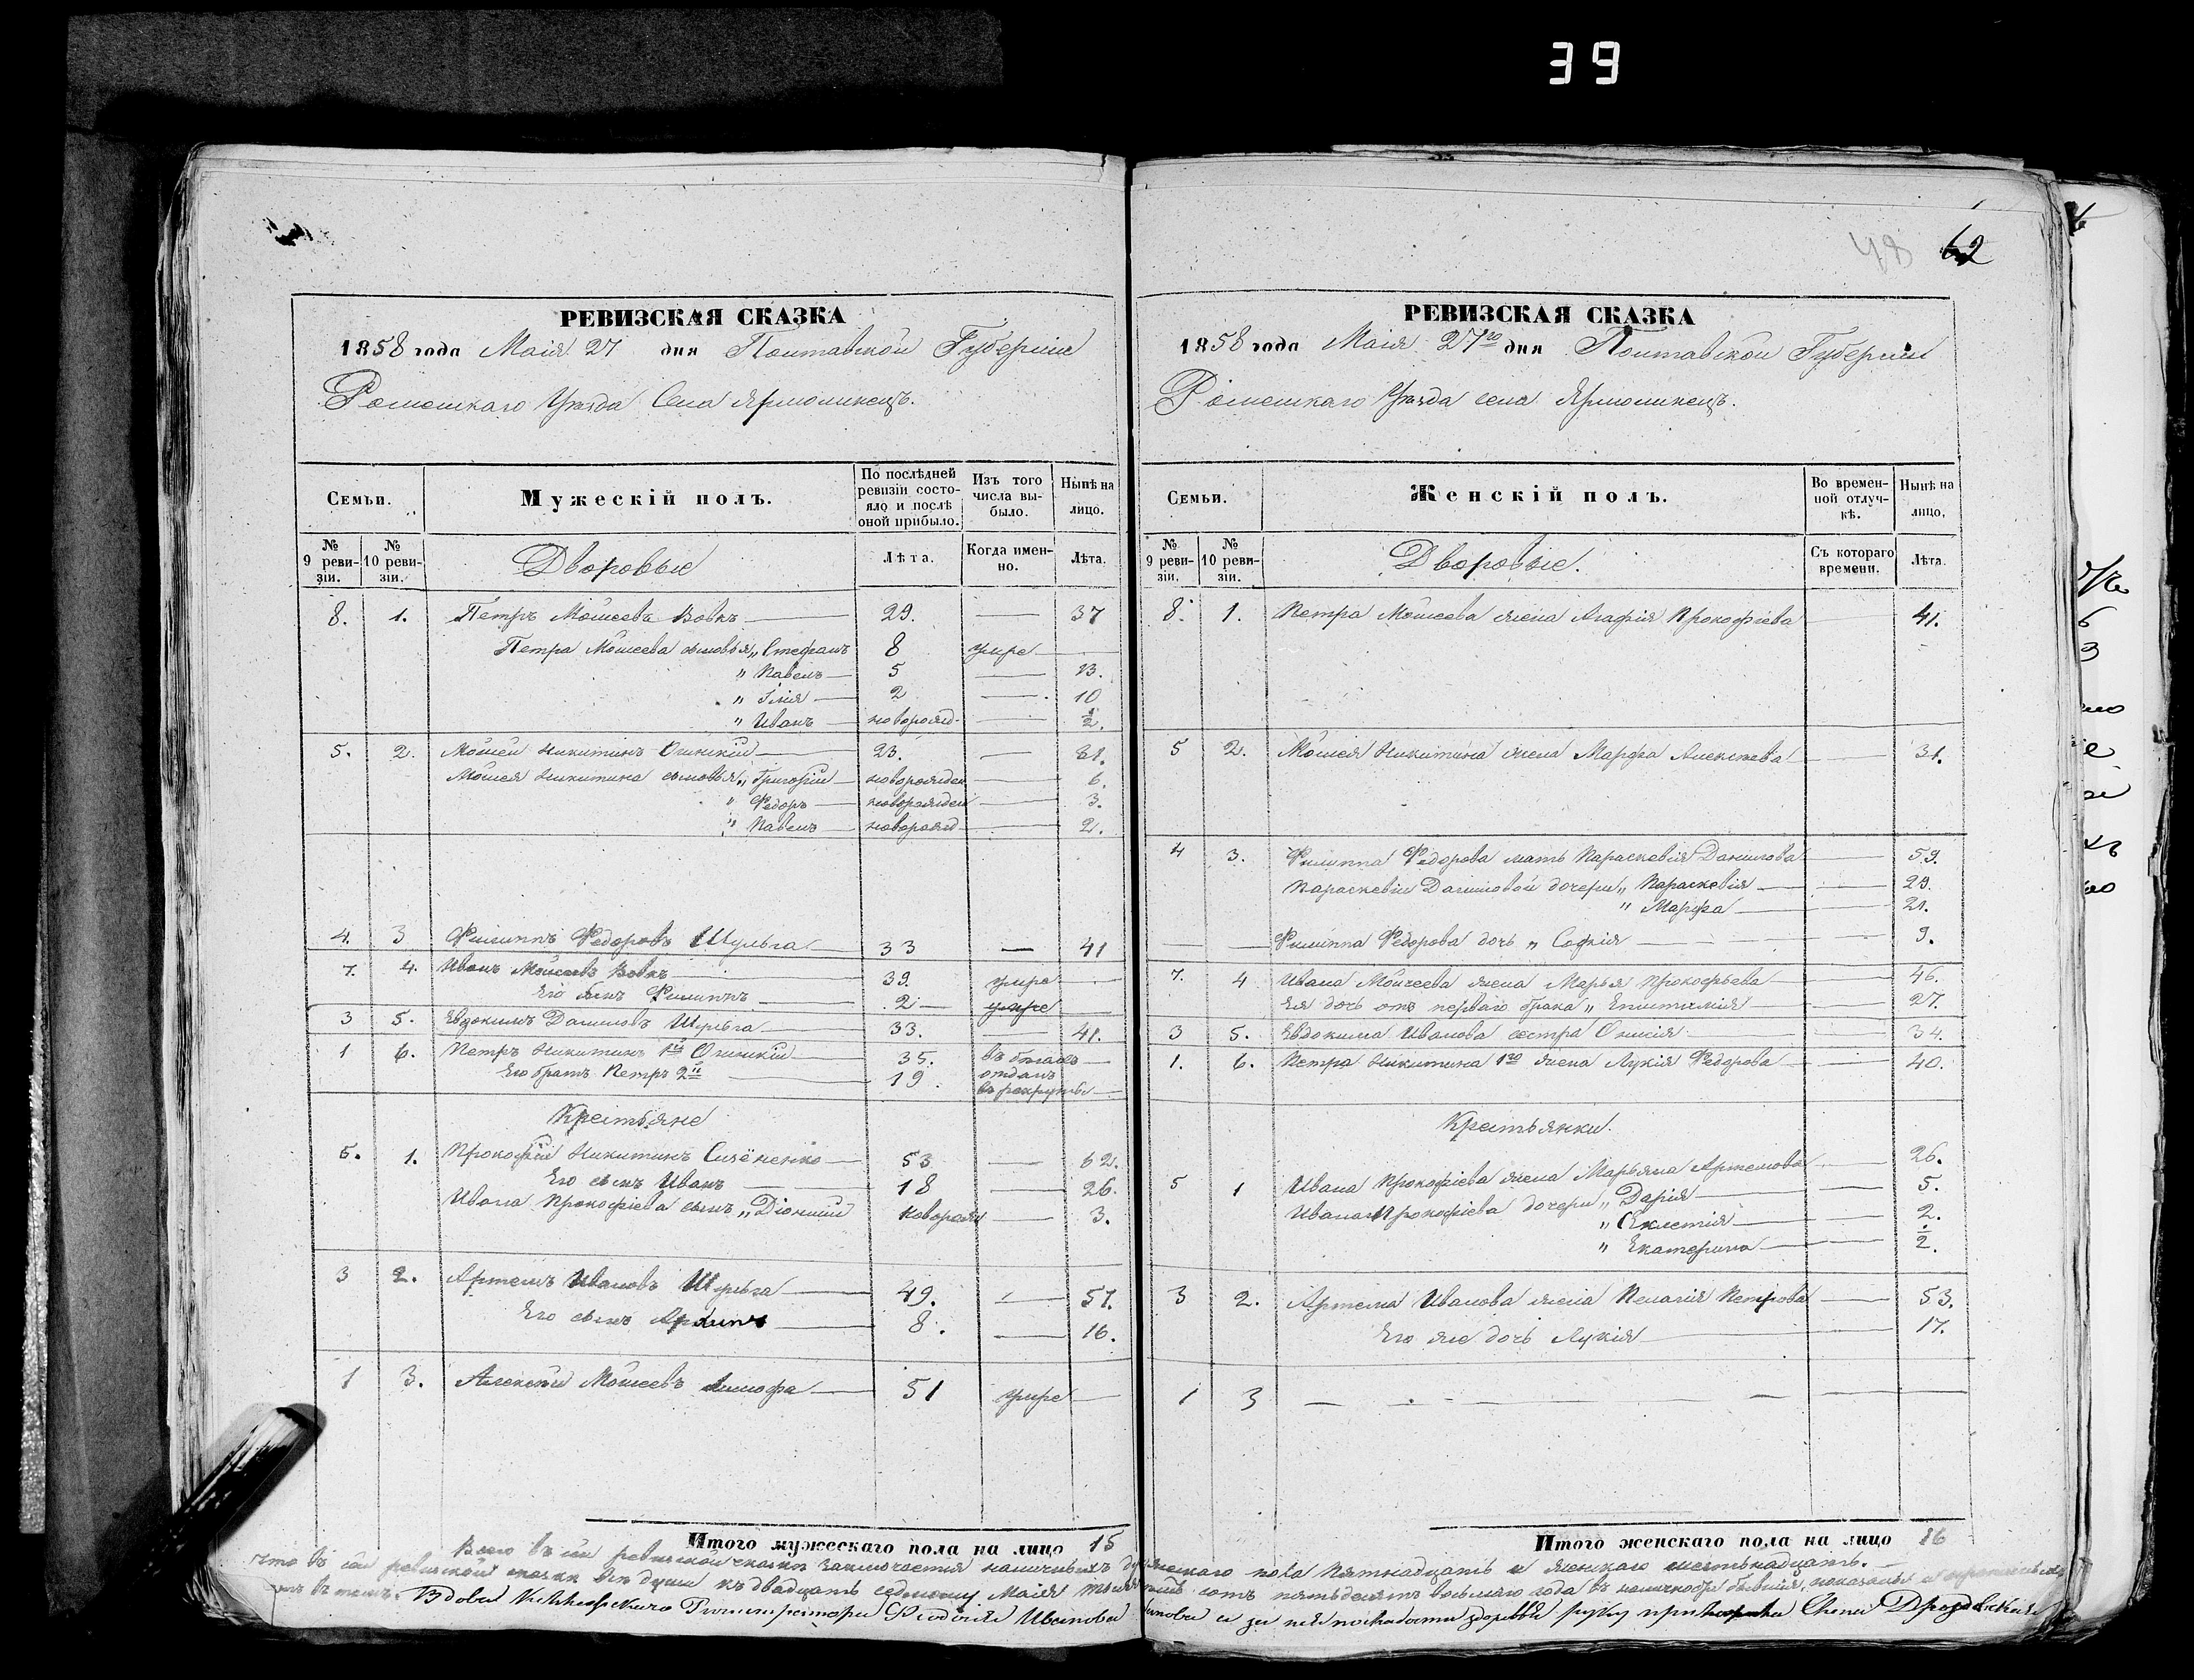 39
48 62
РЕВИЗСКАЯ СКАЗКА
1858 года Маія 27 дня Полтавской Губерніи
Роменскаго Уѣзда Села Ярмолинецъ.
Семьи. Мужескій полъ. По послѣдней ревизіи состояло и послѣ оной прибыло. Изъ того числа выбыло. Нынѣ на лицо.
№ 9 ревизіи. № 10 ревизіи. Дворовые Лѣта. Когда именно. Лѣта.
8. 1. Петръ Мойсеевъ Вовкъ 29. 37
Петра Мойсеева сыновья „ Стефанъ 8 умре
„ Павелъ 5 13.
„ Илія 2 10
„ Иванъ новорожд. ½.
5. 2. Мойсей Никитинъ 23. 31.
Мойсея Никитина сыновья „ Григорій новорожден 6.
„ Федоръ новорожден 3.
„ Павелъ новорожд 2.
4. 3 Филиппъ Федоровъ Шульга 33 41
7. 4. Иванъ Мойсеевъ Вовкъ 39. умре
Его сынъ Филиппъ 2 умре
3 5. Евдокимъ Шульга 33. 41.
1 6. Петръ Никитинъ 1й 35. въ бѣгахъ
Его братъ Петръ 2й 19. отданъ въ рекруты
Крестьяне
5. 1. Прокофій Никитинъ 53 62.
Его сынъ Иванъ 18 26.
Ивана Прокофіева сынъ „ Діонисій новорожд 3.
3 2. Артемъ Ивановъ Шульга 49. 57.
Его сынъ 8. 16.
1 3. Алексѣй Мойсеевъ 51 умре
Итого мужескаго пола на лицо 15
РЕВИЗСКАЯ СКАЗКА
1858 года Маія 27го дня Полтавской Губерніи
Роменскаго Уѣзда села Ярмолинецъ.
Семьи. Женскій полъ. Во временной отлучкѣ. Нынѣ на лицо.
№ 9 ревизіи. № 10 ревизіи. Дворовые. Съ котораго времени. Лѣта.
8. 1. Петра Мойсеева жена Агафія Прокофіева 41.
5 2. Мойсея Никитина жена Марфа Алексѣева 31.
4 3. Филиппа Федорова мать Параскевія Данилова 59.
Параскевіи Даниловой дочери „ Параскевія 29.
„ Марфа 21.
Филиппа Федорова дочь „ Софія 9.
7. 4 Ивана Мойсеева жена Марья Прокофьева 46.
Ея дочь отъ перваго брака „ 27.
3 5. Евдокима Иванова сестра 34.
1. 6. Петра Никитина 1го жена Лукія Федорова 40.
Крестьянки.
5 1 Ивана Прокофіева жена Марьяна Артемова 26.
Ивана Прокофіева дочери „ Дарія 5.
„ 2.
„ Екатерина ½.
3 2. Артема Иванова жена Пелагія Петрова 53.
Его же дочь Лукія 17.
1 3
Итого женскаго пола на лицо 16
Всего въ сей ревизской сказкѣ заключается наличныхъ душ мужескаго пола пятнадцать и женскаго шестьнадцать.
что въ сей ревизской сказкѣ всѣ души къ двадцать седьмому Маія тысяча сотъ пятьдесятъ восьмаго года въ наличности бывшія, показаны и
въ томъ. Вдова Ѳеодосія Иванова а за нея по слабости здоровья руку приложила